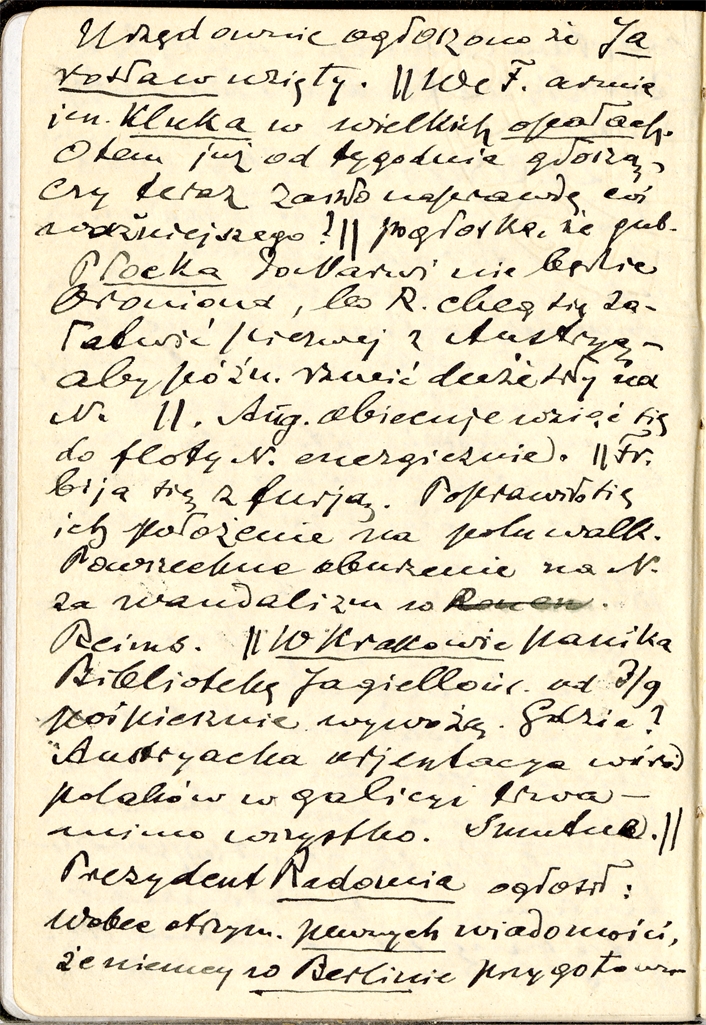 Urzędownie ogłoszono że Ja
rosław wzięty. || We F. armia
jen. Kluka w wielkich opałach.
O tem już od tygodnia głoszą,
czy teraz zaszło naprawdę coś
ważniejszego? || pogłoska, że gub.
Płocka do Narwi nie będzie
broniona, bo R. chcą się za-
łatwić pierwej z Austryą,
aby późn. rzucić duże siły na
N. || . Ang. obiecuje wziąć się
do floty N. energicznie. || Fr.
biją się z furją. Poprawiło się
ich położenie na polu walk.
Powszechne oburzenie na N.
za wandalizm w Rouen.
Reims. || W Krakowie panika
Bibliotekę Jagiellońs. od 3/9
pośpiesznie wywożą. Gdzie?
Austryacka orjentacya wśród
polaków w galicyi trwa –
mimo wszystko. Smutne. ||
Prezydent Radomia ogłosił:
Wobec otrzym. pewnych wiadomości,
że niemcy w Berlinie przygotow